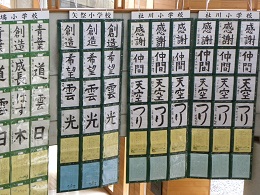 小学校
青葉 創造 青葉
道 成長 道
雲 雲
日 木 日
矢祭小学校
創造 創造 創造
希望 希望 希望
雲 雲 雲
光 光 光
社川小学校
感謝 感謝 感謝
仲間 仲間 仲間
天空 天空 天空
つり つり つり
社川小学校
感謝 感謝 感謝
仲間 仲間 仲間
天空 天空 天空
つり つり つり